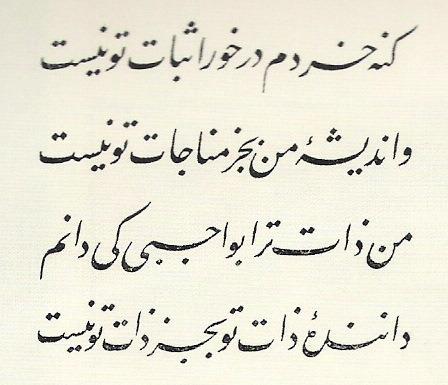 کنه خردم در خور اثبات تو نیست
واندیشهٔ من بجز مناجات تو نیست
من ذات ترا بواجبی کی دانم
دانندهٔ ذات تو بجز ذات تو نیست